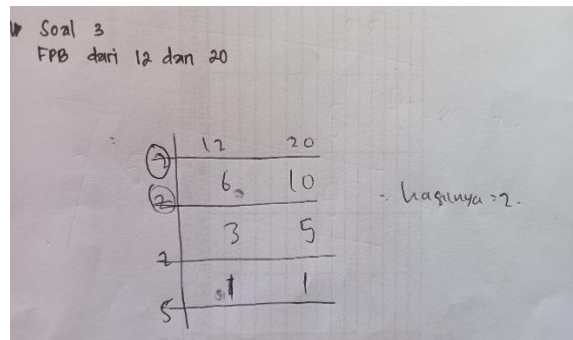 Soal 3
FPB dari 12 dan 20
12 20
2
6 10
2
3 5
2
1 1
5
hasilnya = 2.